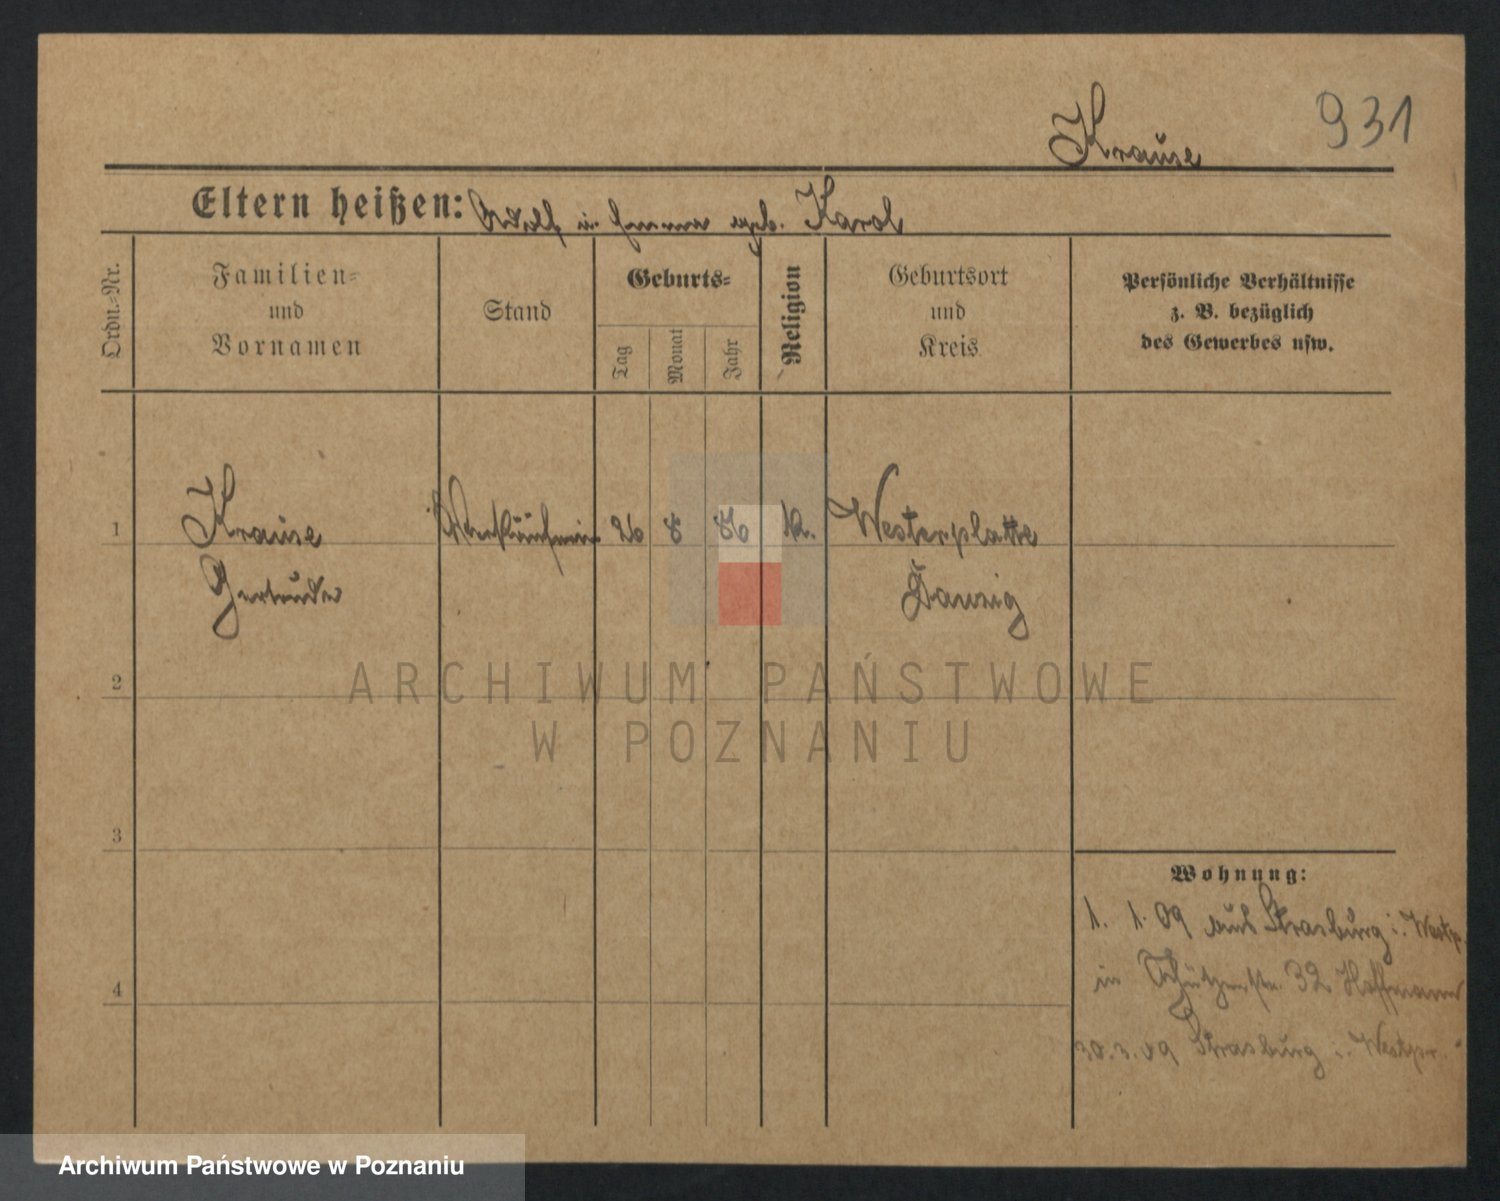 931
Krause
Eltern heißen: Adolf u. Emma geb. Karol
Ordn.-Nr.
Familien-
und
Vornamen
Stand
Geburts-
Tag
Monat
Jahr
Religion
Geburtsort
und
Kreis
Persönliche Verhältnisse
z. B. bezüglich
des Gewerbes usw.
1 Krause 26 8 86 k. Westerplatte
Gertrude Danzig
2
3
4
Wohnung:
1. 1. 09 aus Strasburg i. Westp.
in Schützenstr. 32 Hoffmann
30.3.09 Strasburg i. Westpr.
ARCHIWUM PAŃSTWOWE
W POZNANIU
Archiwum Państwowe w Poznaniu